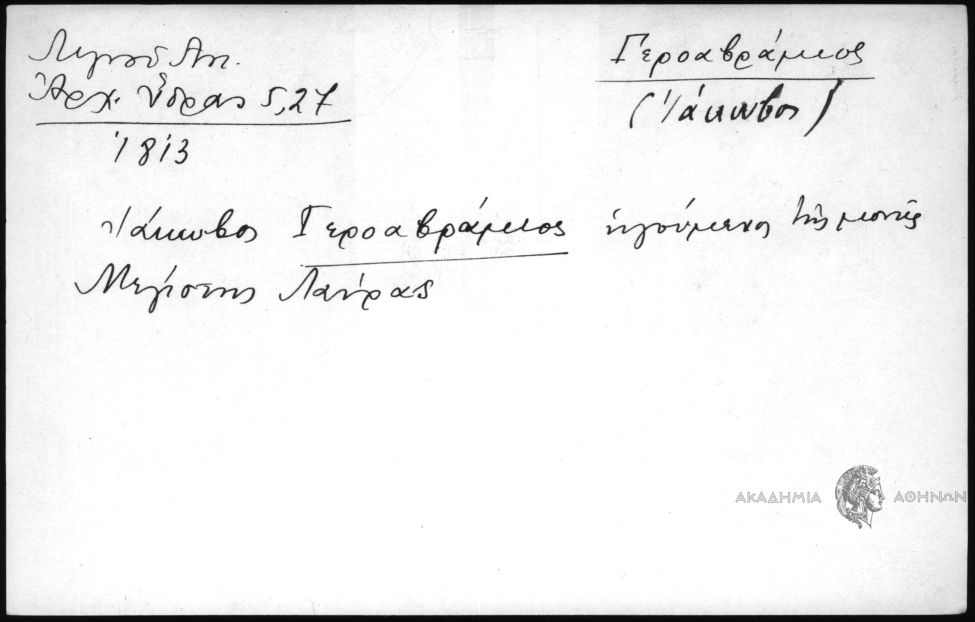 Λιγνοῦ Ἀντ.
Ἀρχ. Ὕδρας 5, 27
1813
Γεροαβράμιος
(Ἰάκωβος)
Ἰάκωβος Γεροαβράμιος ἡγούμενος τῆς μονῆς
Μεγίστης Λαύρας
ΑΚΑΔΗΜΙΑ ΑΘΗΝΩΝ